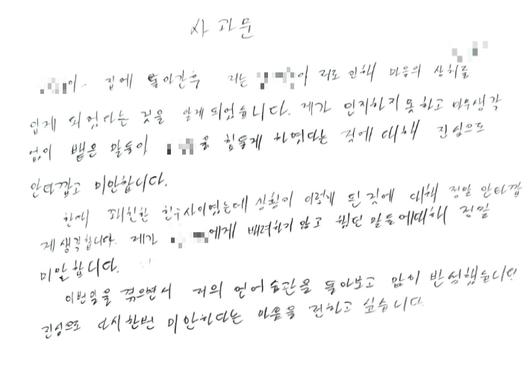 사 과 문
집에 돌아간후 저는 이 저로 인해 마음의 상처를
입게 되었다는 것을 알게 되었습니다. 제가 인지하지 못하고 너무생각
없이 뱉은 말들이 을 힘들게 하였다는 것에 대해 진심으로
안타깝고 미안합니다.
한때 친한 친구사이였는데 상황이 이렇게 된것에 대해 정말 안타깝
게생각합니다. 제가 에게 배려하지않고 했던 말들에대해 정말
미안합니다.
이번일을 겪으면서 저의 언어습관을 돌아보고 많이 반성했습니다
진심으로 다시한번 미안하다는 마음을 전하고 싶습니다.